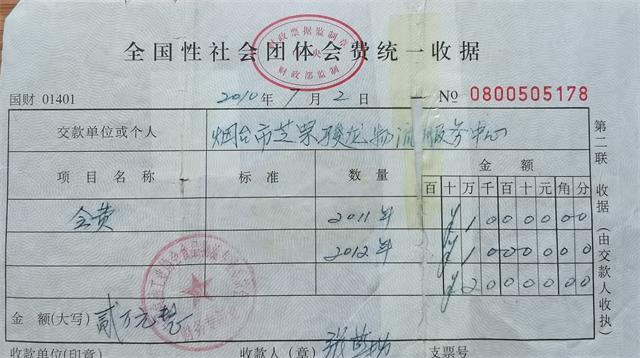 财政票据监制章
中央
财政部监制
全国性社会团体会费统一收据
国财 01401 2010年9月2日 No 0800505178
交款单位或个人 烟台市芝罘骏龙物流服务中心
项目名称 标准 数量 金额
百十万千百十元角分
会费 2011年 ¥1000000
2012年 ¥1000000
¥2000000
金额(大写) 贰万元整
收款单位(印章) 收款人(章) 支票号
第二联 收据(由交款人收执)